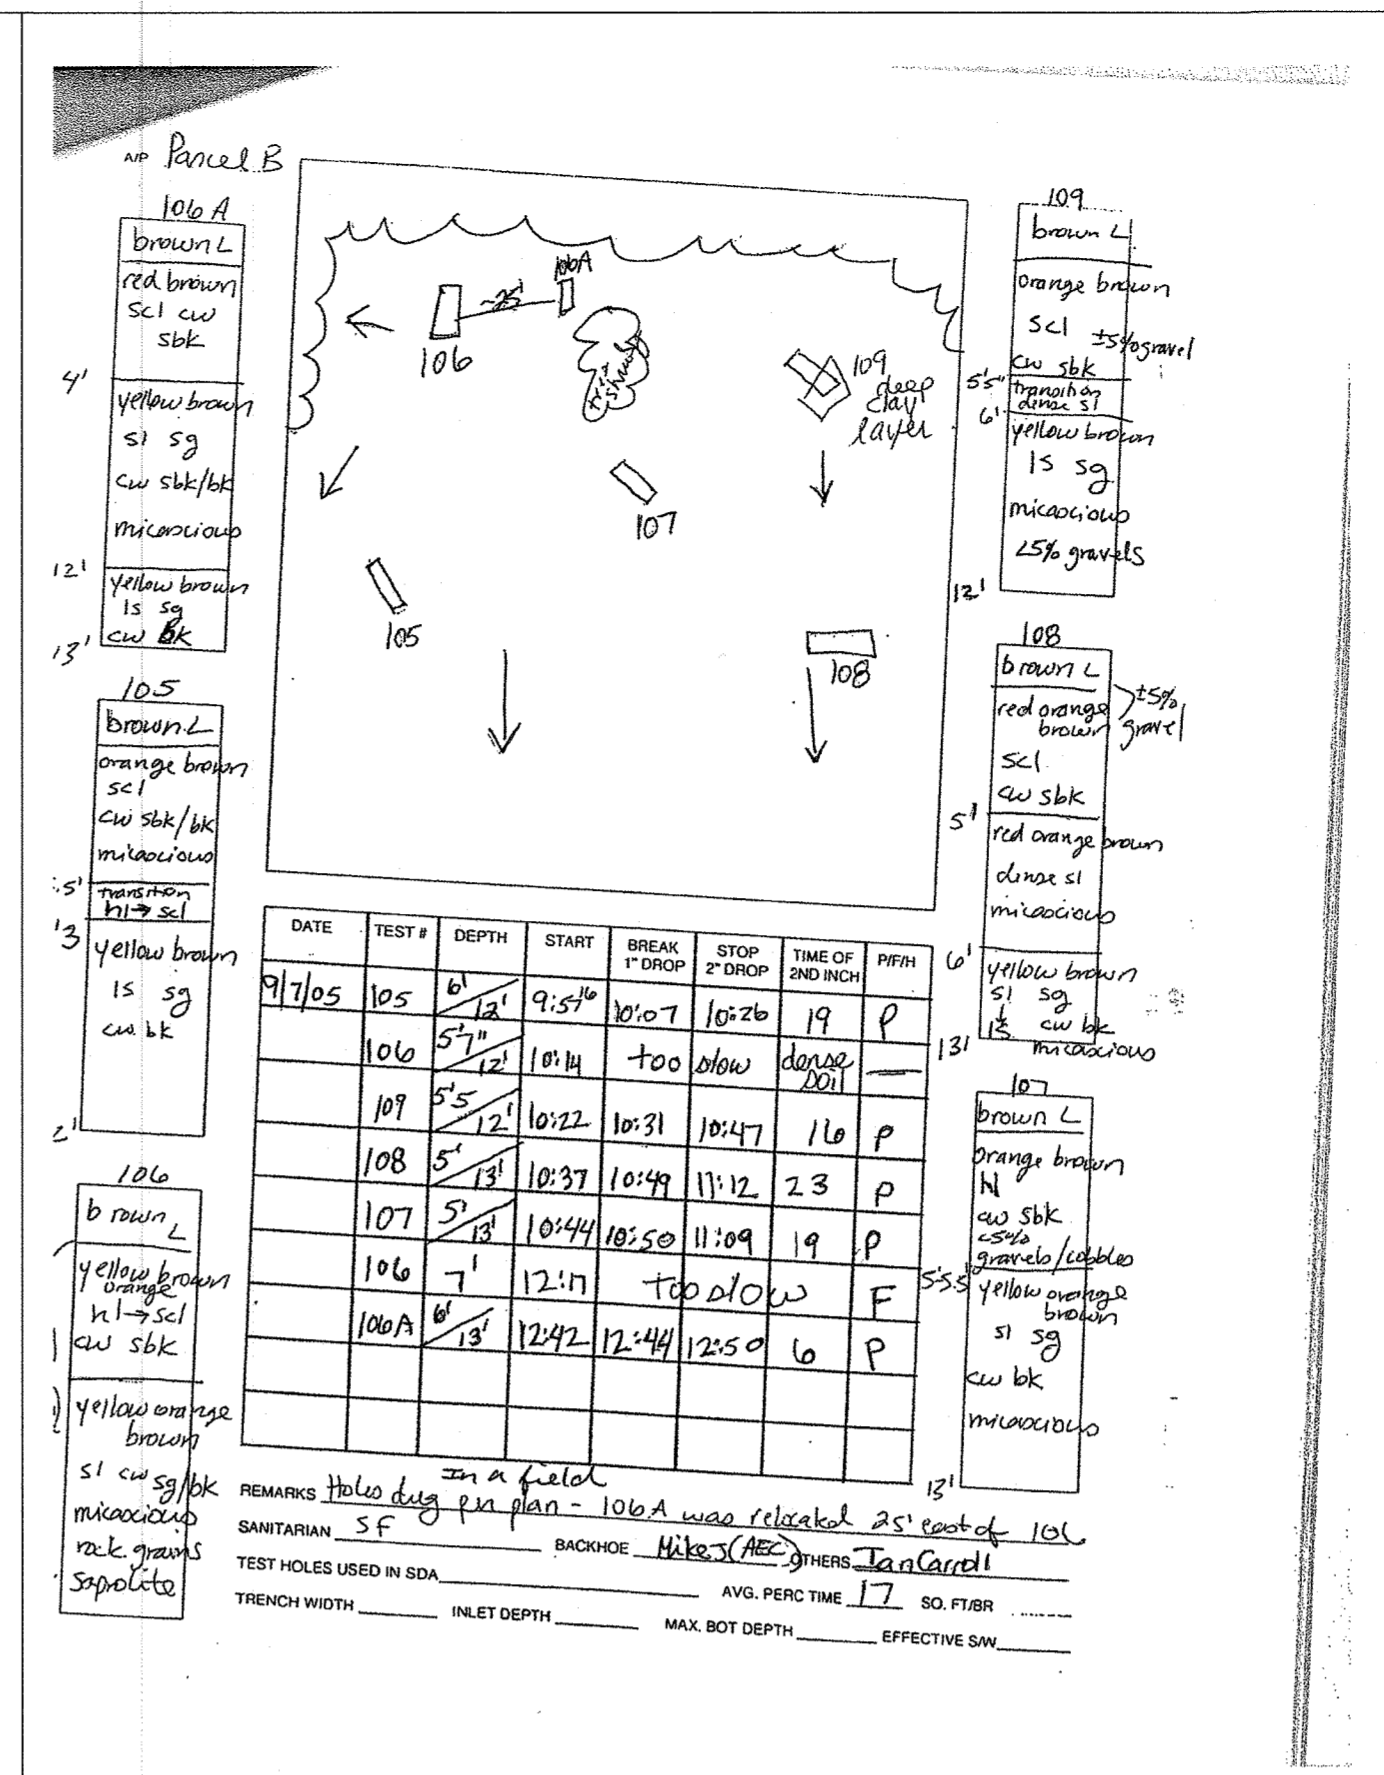 A/P Parcel B
106A
brown L
red brown
scl cw
sbk
4'
yellow brown
sl sg
cw sbk/bk
micaocious
12'
yellow brown
ls sg
cw bk
13'
105
brown L
orange brown
scl
cw sbk/bk
micaocious
5'
transition
hl→scl
'3
yellow brown
ls sg
cw bk
2'
106
brown
L
yellow brown
orange
hl→scl
cw sbk
yellow orange
brown
sl cw sg/bk
micaocious
rock grains
saprolite
106A
~25'
106
109
deep
clay
layer
107
105
108
109
brown L
orange brown
scl ±5% gravel
cw sbk
5'5"
transition
dense sl
6'
yellow brown
ls sg
micaocious
<5% gravels
12'
108
brown L
±5%
gravel
red orange
brown
scl
cw sbk
5'
red orange brown
dense sl
micaocious
6'
yellow brown
sl sg
↓
ls cw bk
micaocious
13'
107
brown L
orange brown
hl
cw sbk
<5%
gravels/cobbles
5'-5.5'
yellow orange
brown
sl sg
cw bk
micaocious
13'
DATE TEST # DEPTH START BREAK 1" DROP STOP 2" DROP TIME OF 2ND INCH P/F/H
9/7/05 105 6'/12' 9:57 16 10:07 10:26 19 P
106 5'7"/12' 10:14 too slow dense soil —
109 5'5/12' 10:22 10:31 10:47 16 P
108 5'/13' 10:37 10:49 11:12 23 P
107 5'/13' 10:44 10:50 11:09 19 P
106 7' 12:17 too slow F
106A 6'/13' 12:42 12:44 12:50 6 P
In a field
REMARKS Holes dug per plan - 106A was relocated 25' east of 106
SANITARIAN SF BACKHOE Mike J (AEC) OTHERS Ian Carroll
TEST HOLES USED IN SDA AVG. PERC TIME 17 SQ. FT/BR
TRENCH WIDTH INLET DEPTH MAX. BOT DEPTH EFFECTIVE S/W